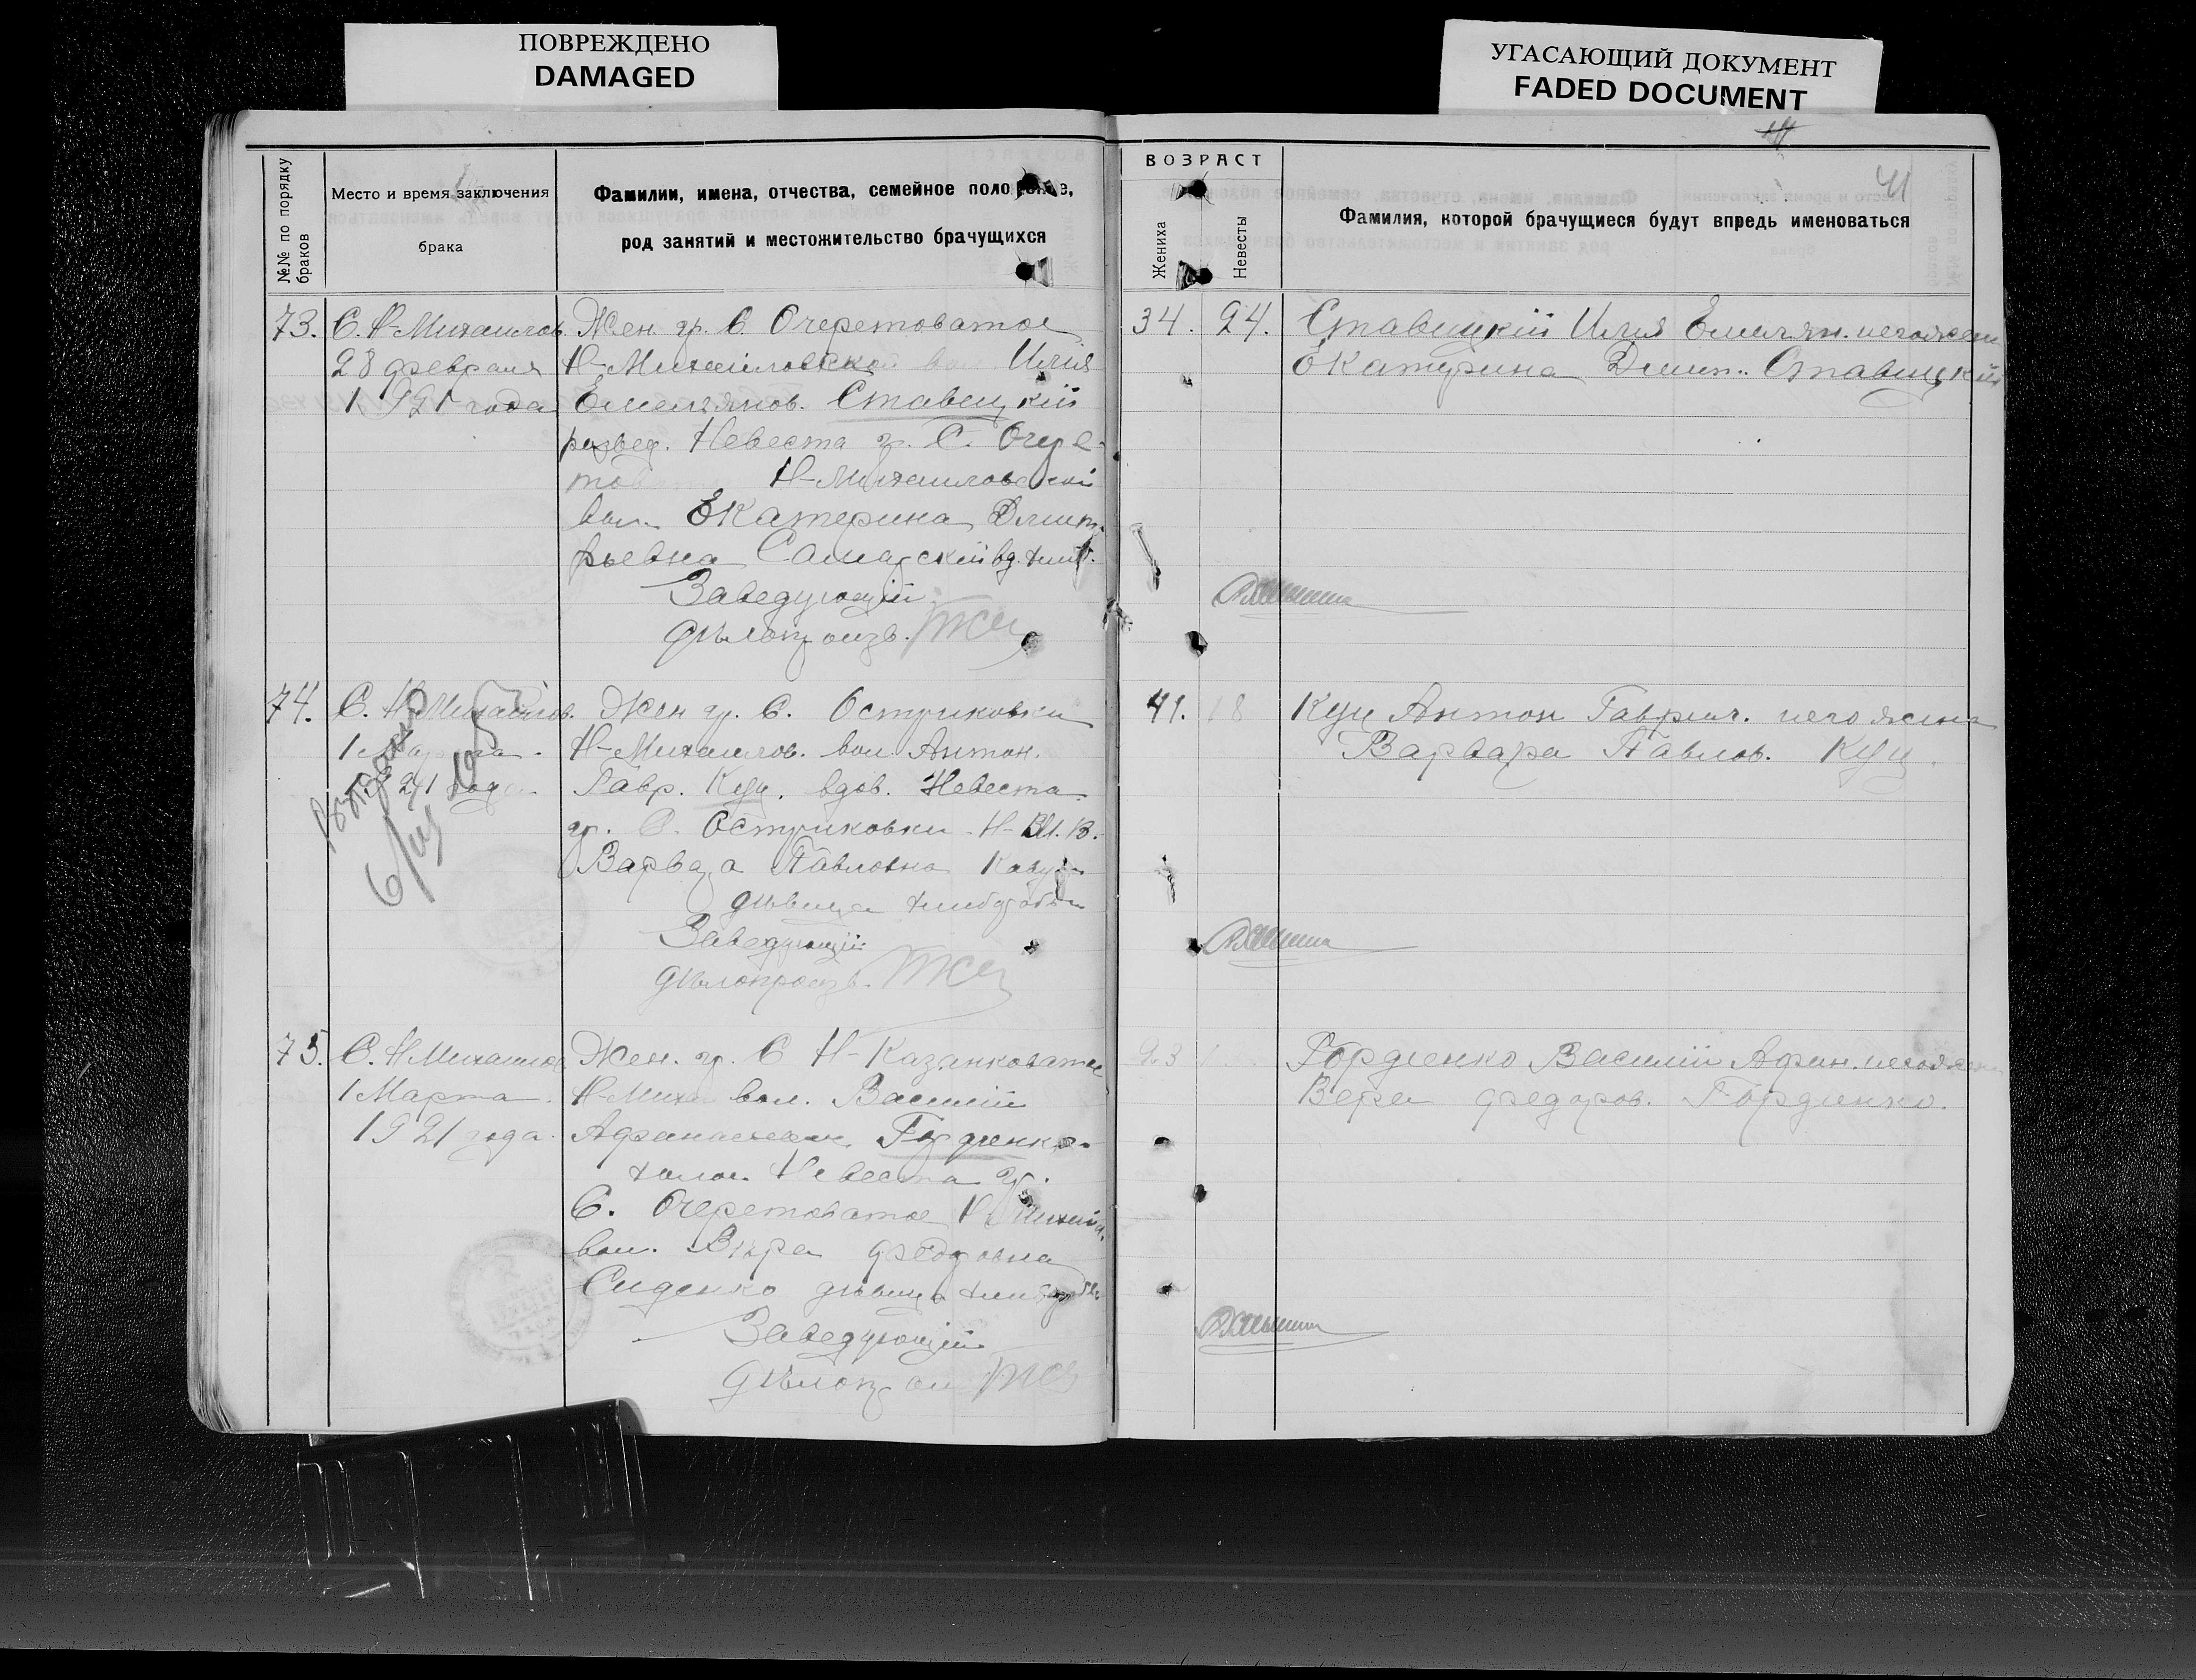 ПОВРЕЖДЕНО
DAMAGED
УГАСАЮЩИЙ ДОКУМЕНТ
FADED DOCUMENT
41
№№ по порядку
браков
Место и время заключения
брака
Фамилии, имена, отчества, семейное поло е,
род занятий и местожительство брачущихся
ВОЗРАСТ
Жениха
Невесты
Фамилия, которой брачущиеся будут впредь именоваться
73.
С. Н-Михайлов.
28 февраля
1921 года
Жен. гр. С. Очеретоватое
Н-Михайловской вол. Илія
Емельянов. Ставицкій
развед. Невеста гр. С. Очере-
това Н-Михайловской
вол. Екатерина Дмит-
рьевна вд.
Заведующій
дѣлопроизв.
34. 24.
Ставицкій Илія Емельян. его жена
Екатерина Дмит. Ставицкій
74.
С. Н-Михайлов.
1 Марта
1921 года
6/III
Жен гр. С. Остриковки
Н-Михайлов. вол. Антон.
Гавр. Куц. вдов. Невеста
гр. С. Остриковки Н-М. В.
Варвара Павловна
дѣвица
Заведующій
дѣлопроизв.
41. 18
Куц Антон Гаврил. его жена
Варвара Павлов. Куц.
75.
С. Н Михайлов
1 Марта
1921 года
Жен. гр. С Н-Казанковатое
Н-Миха вол. Василій
Афанасьевич Гордіенко
холос. Невеста гр.
С. Очеретоватое Н-Михайл.
вол. Вѣра Федоровна
Сиденко дѣвица
Заведующій
дѣлопроизв
23
Гордіенко Василій Афан. его жена
Вера Федоров. Гордіенко.